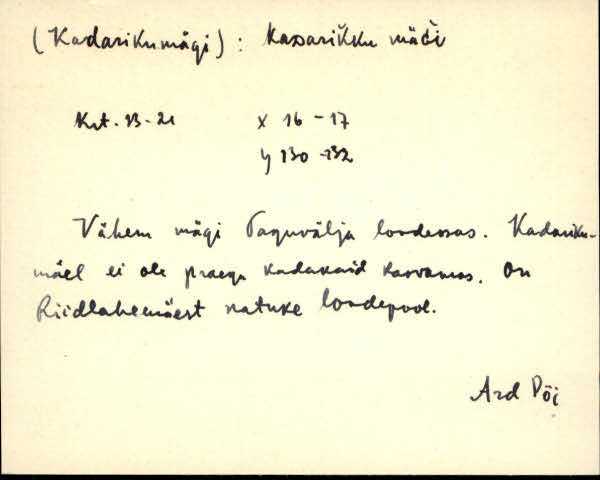 (Kadarikumägi) : kaðariĭkku mäǵi
Krt. 13-21 x 16 - 17
y 130 - 132
Vähem mägi Taguvälja loodeosas. Kadariku-
mäel ei ole praegu kadakaid kasvamas. On
Riidlahemäest natuke loodepool.
Ard Põi